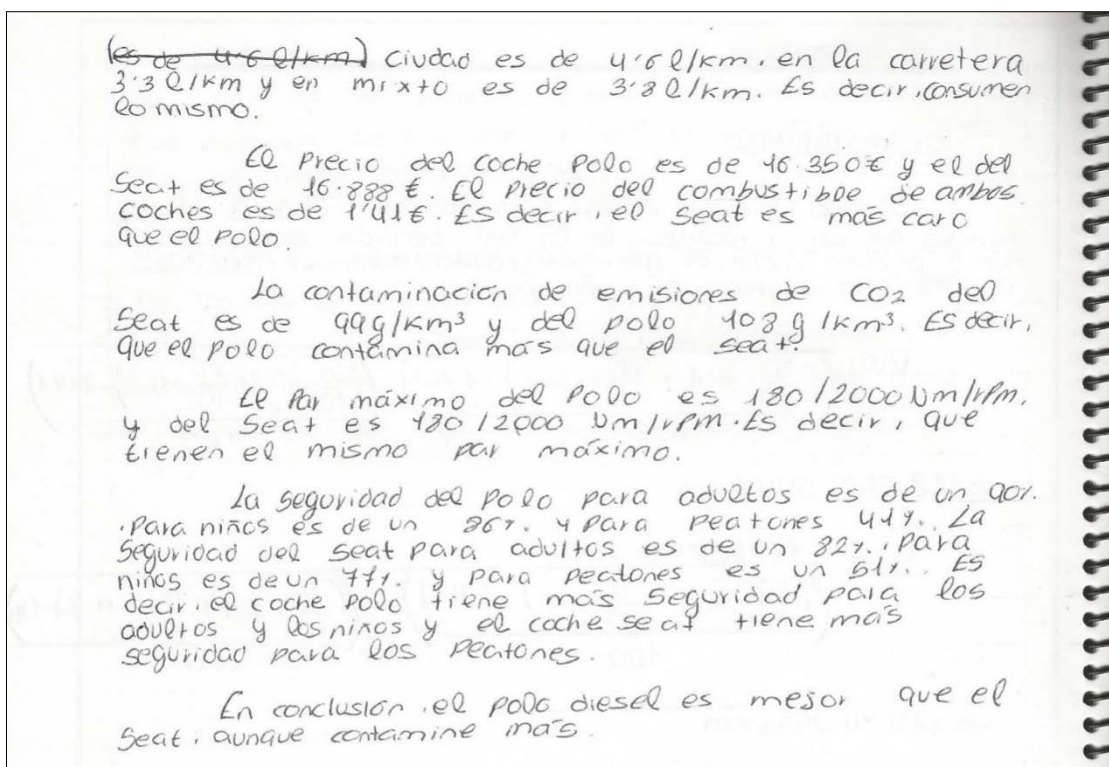 (es de 4'6 l/km) ciudad es de 4'6 l/km. en la carretera
3'3 l/km y en mixto es de 3'8 l/km. Es decir, consumen
lo mismo.
El Precio del coche Polo es de 16.350€ y el del
Seat es de 16.888 €. El precio del combustible de ambos
coches es de 1'41€. Es decir, el Seat es más caro
que el Polo.
La contaminación de emisiones de CO2 del
Seat es de 99g/km³ y del polo 108 g/km³. Es decir,
que el Polo contamina más que el Seat.
El Par máximo del Polo es 180/2000 Nm/rpm.
y del Seat es 180/2000 Nm/rpm. Es decir, que
tienen el mismo par máximo.
La seguridad del Polo para adultos es de un 90%.
Para niños es de un 86%. y para peatones 41%. La
Seguridad del Seat para adultos es de un 82%. Para
niños es de un 77%. y para peatones es un 51%. Es
decir, el coche Polo tiene más seguridad para los
adultos y los niños y el coche seat tiene más
seguridad para los peatones.
En conclusión, el polo diesel es mejor que el
Seat, aunque contamine más.